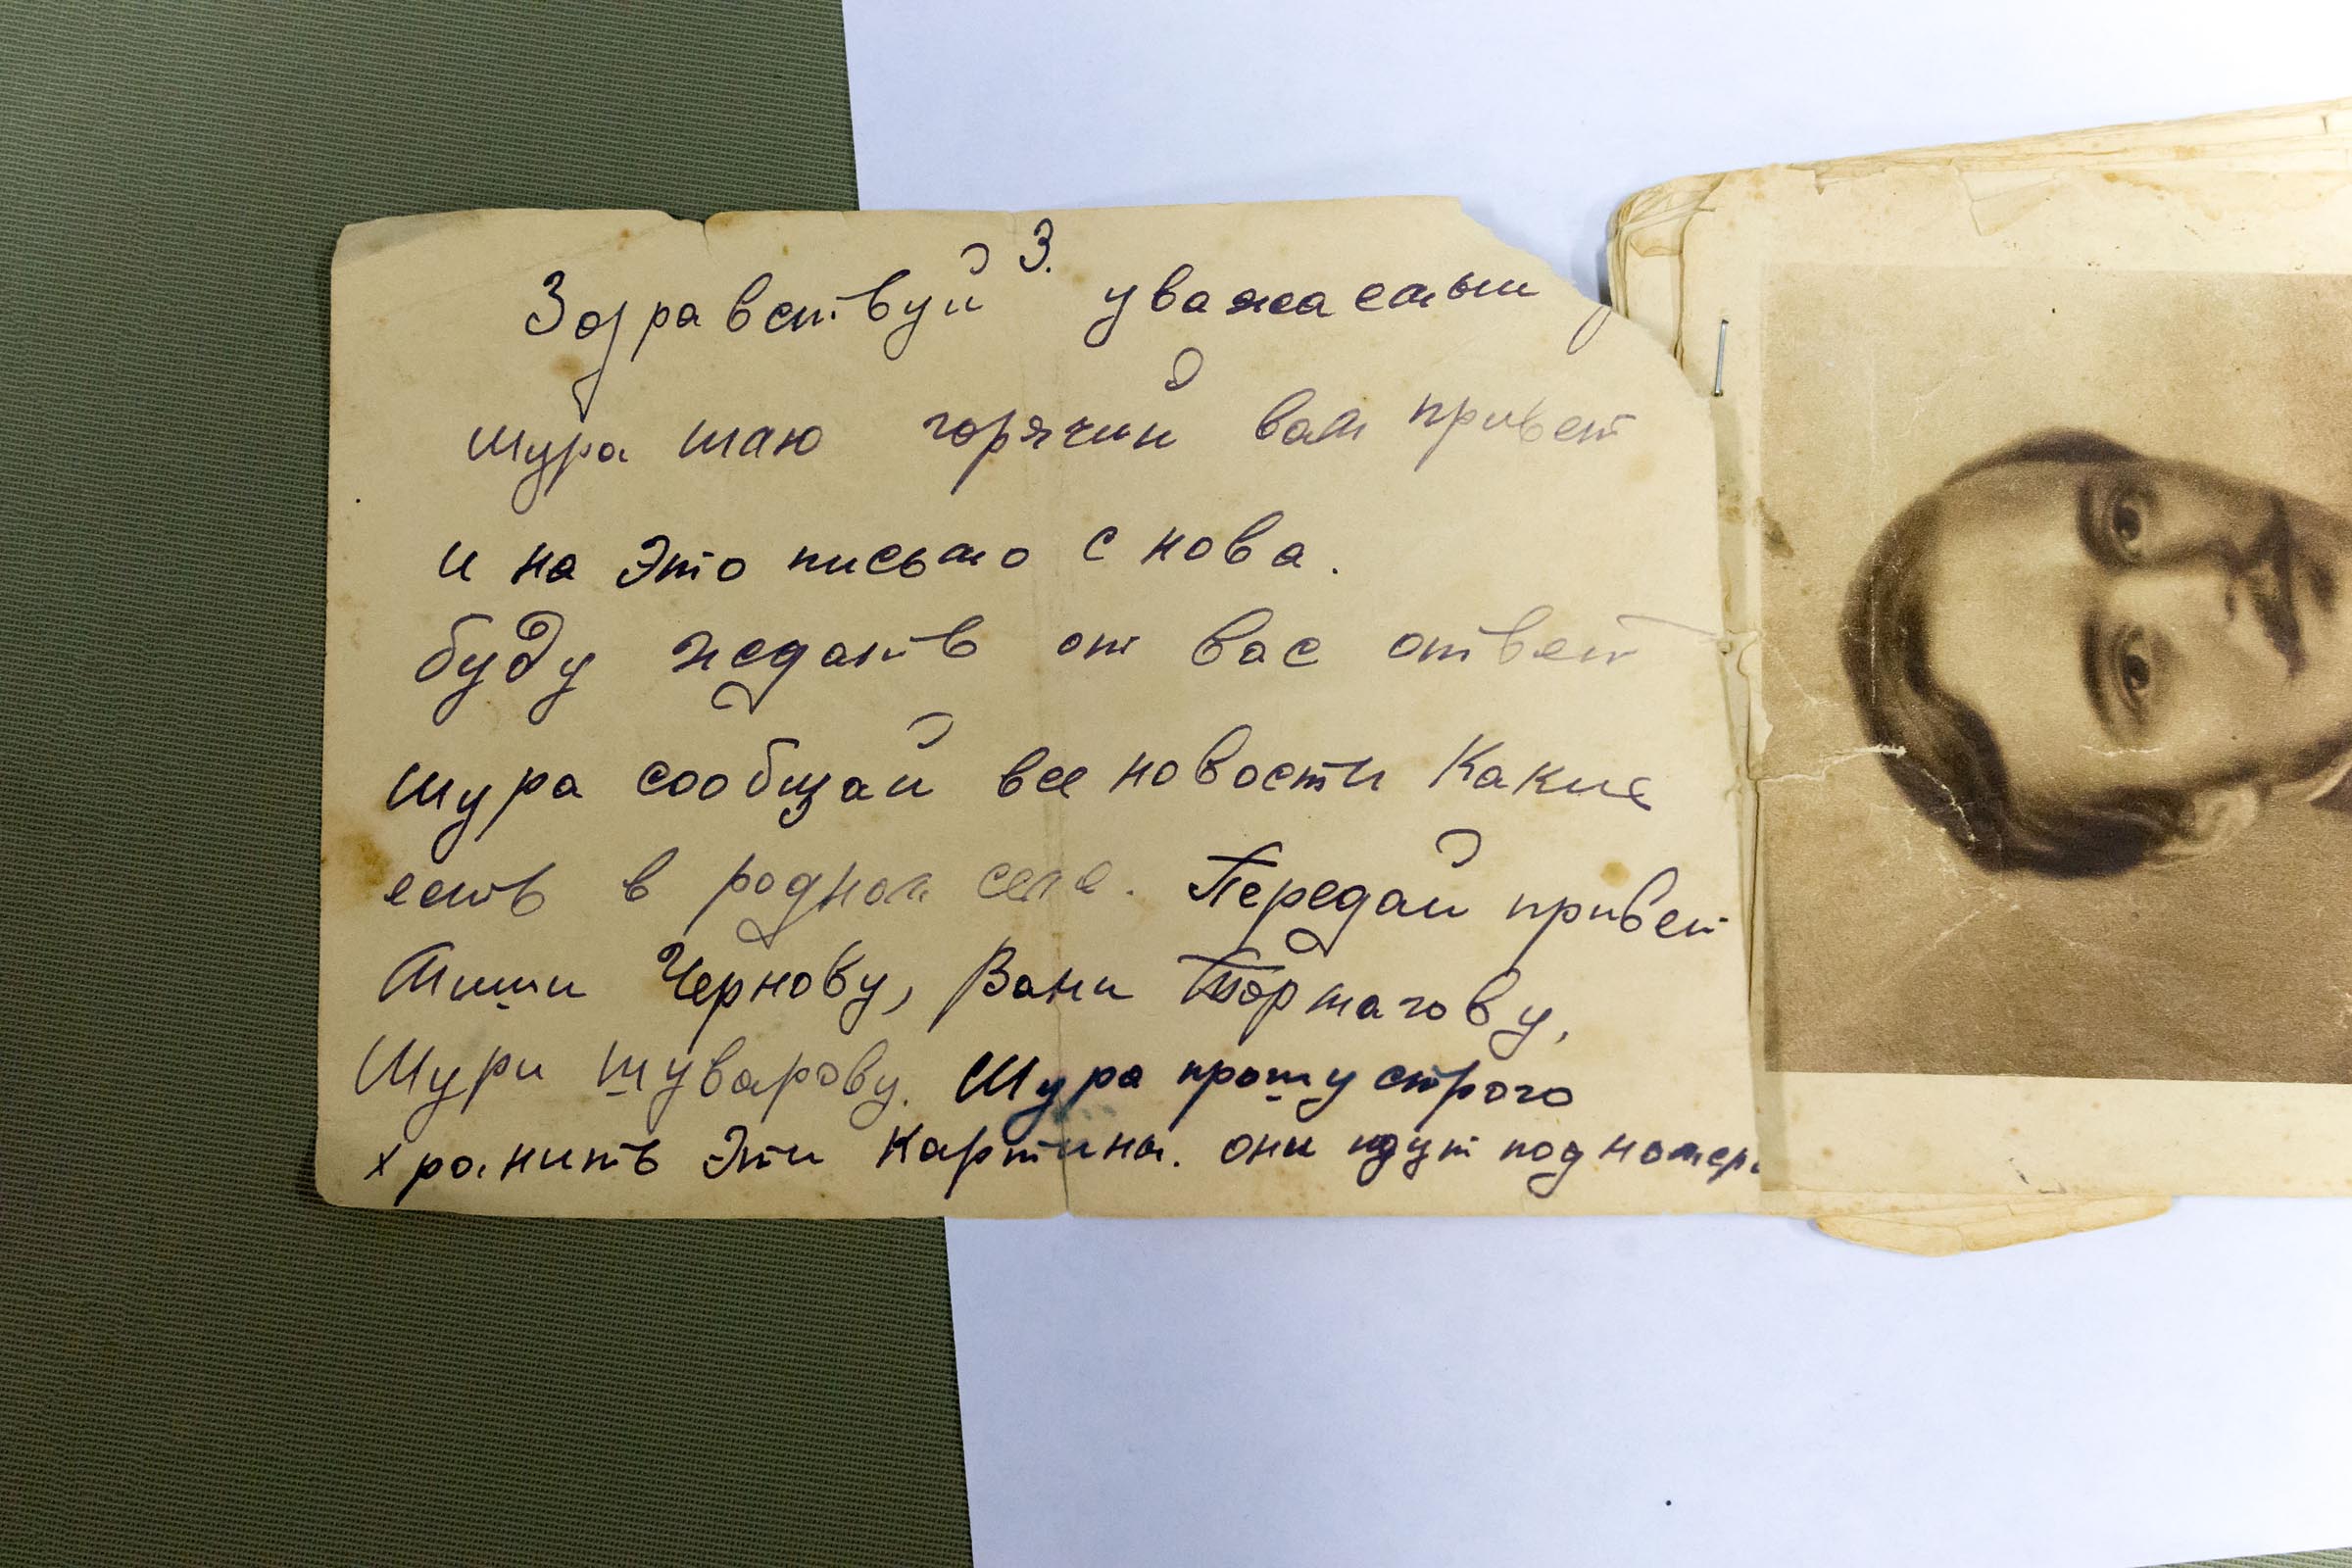 3.
Здравствуй уважаемый
Шура шлю горячий вам привет
и на это письмо снова.
буду жедать от вас ответ
Шура сообщай все новости Какие
есть в родном селе. Передай привет
Миши Чернову, Вани
Шури шуварову. Шура прошу строго
хранить эти Картины. они идут под номер